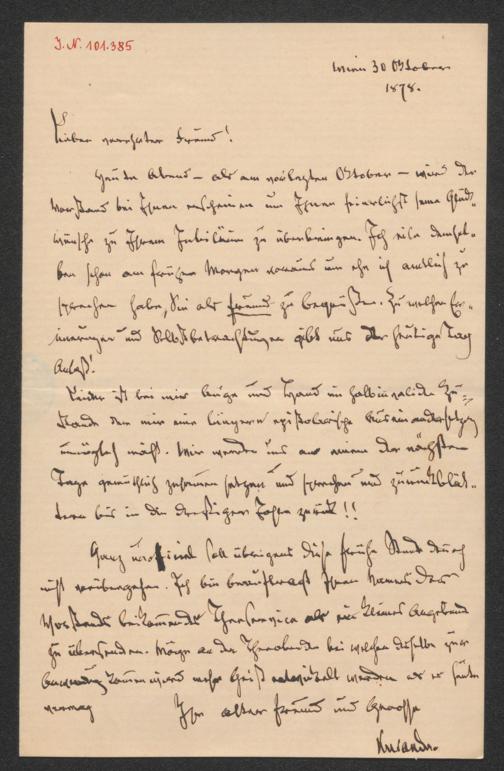 J. N. 101.385
Wien 30 Oktober
1878.
Lieber verehrter Freund!
Heute Abend – als am vorletzten Oktober – wird der
Vorstand bei Ihnen erscheinen um Ihnen feierlichst seine Glück-
wünsche zu Ihrem Jubiläum zu überbringen. Ich eile demsel-
ben schon am frühen Morgen voraus um ehe ich amtlich zu
sprechen habe, Sie als Freund zu begrüßen. Zu welchen Er-
innerungen und Selbstbetrachtungen gibt uns der heutige Tag
Anlaß!
Leider ist bei mir Auge und Hand im halbinvaliden Zu-
stande der mir eine längere epistolarische Auseinandersetzung
unmöglich macht. Wir werden uns an einem der nächsten
Tage gemüthlich zusammen setzen und sprechen und zurückblät-
tern bis in die dreißiger Jahre zurück!!
Ganz unofficiel soll übrigens diese frühe Stunde doch
nicht vorübergehen. Ich bin beauftragt Ihnen Namens des
Vorstands beikommendes Theeservice als ein kleines Angebinde
zu übersenden. Möge an den Theeabenden bei welchen dasselbe zur
kommen wird mehr Geist entwickelt werden als er heute
vermag
Ihr alter Freund und Genosse
Kuranda.